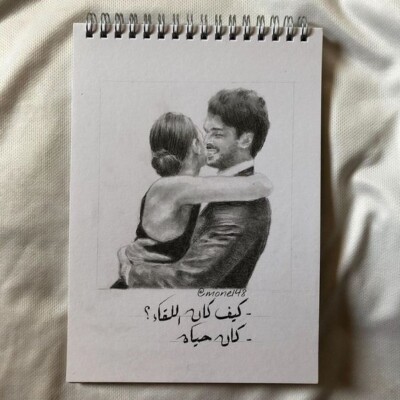 @mone148
- كيف كان اللقاء؟
- كان حياة